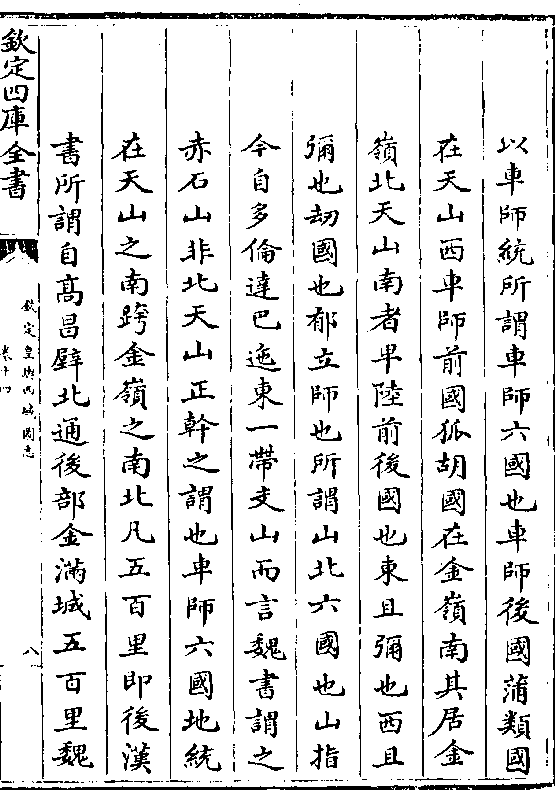 以車師統所謂車師六國也車師後國蒲類國
在天山西車師前國狐胡國在金嶺南其居金
嶺北天山南者卑陸前後國也東且彌也西且
彌也劫國也郁立師也所謂山北六國也山指
今自多倫達巴迤東一帶支山而言魏書謂之
赤石山非北天山正幹之謂也車師六國地統
在天山之南跨金嶺之南北凡五百里即後漢
書所謂自髙昌壁北通後部金滿城五百里魏
欽定四庫全書
欽定皇輿西域圖志
卷十四
八